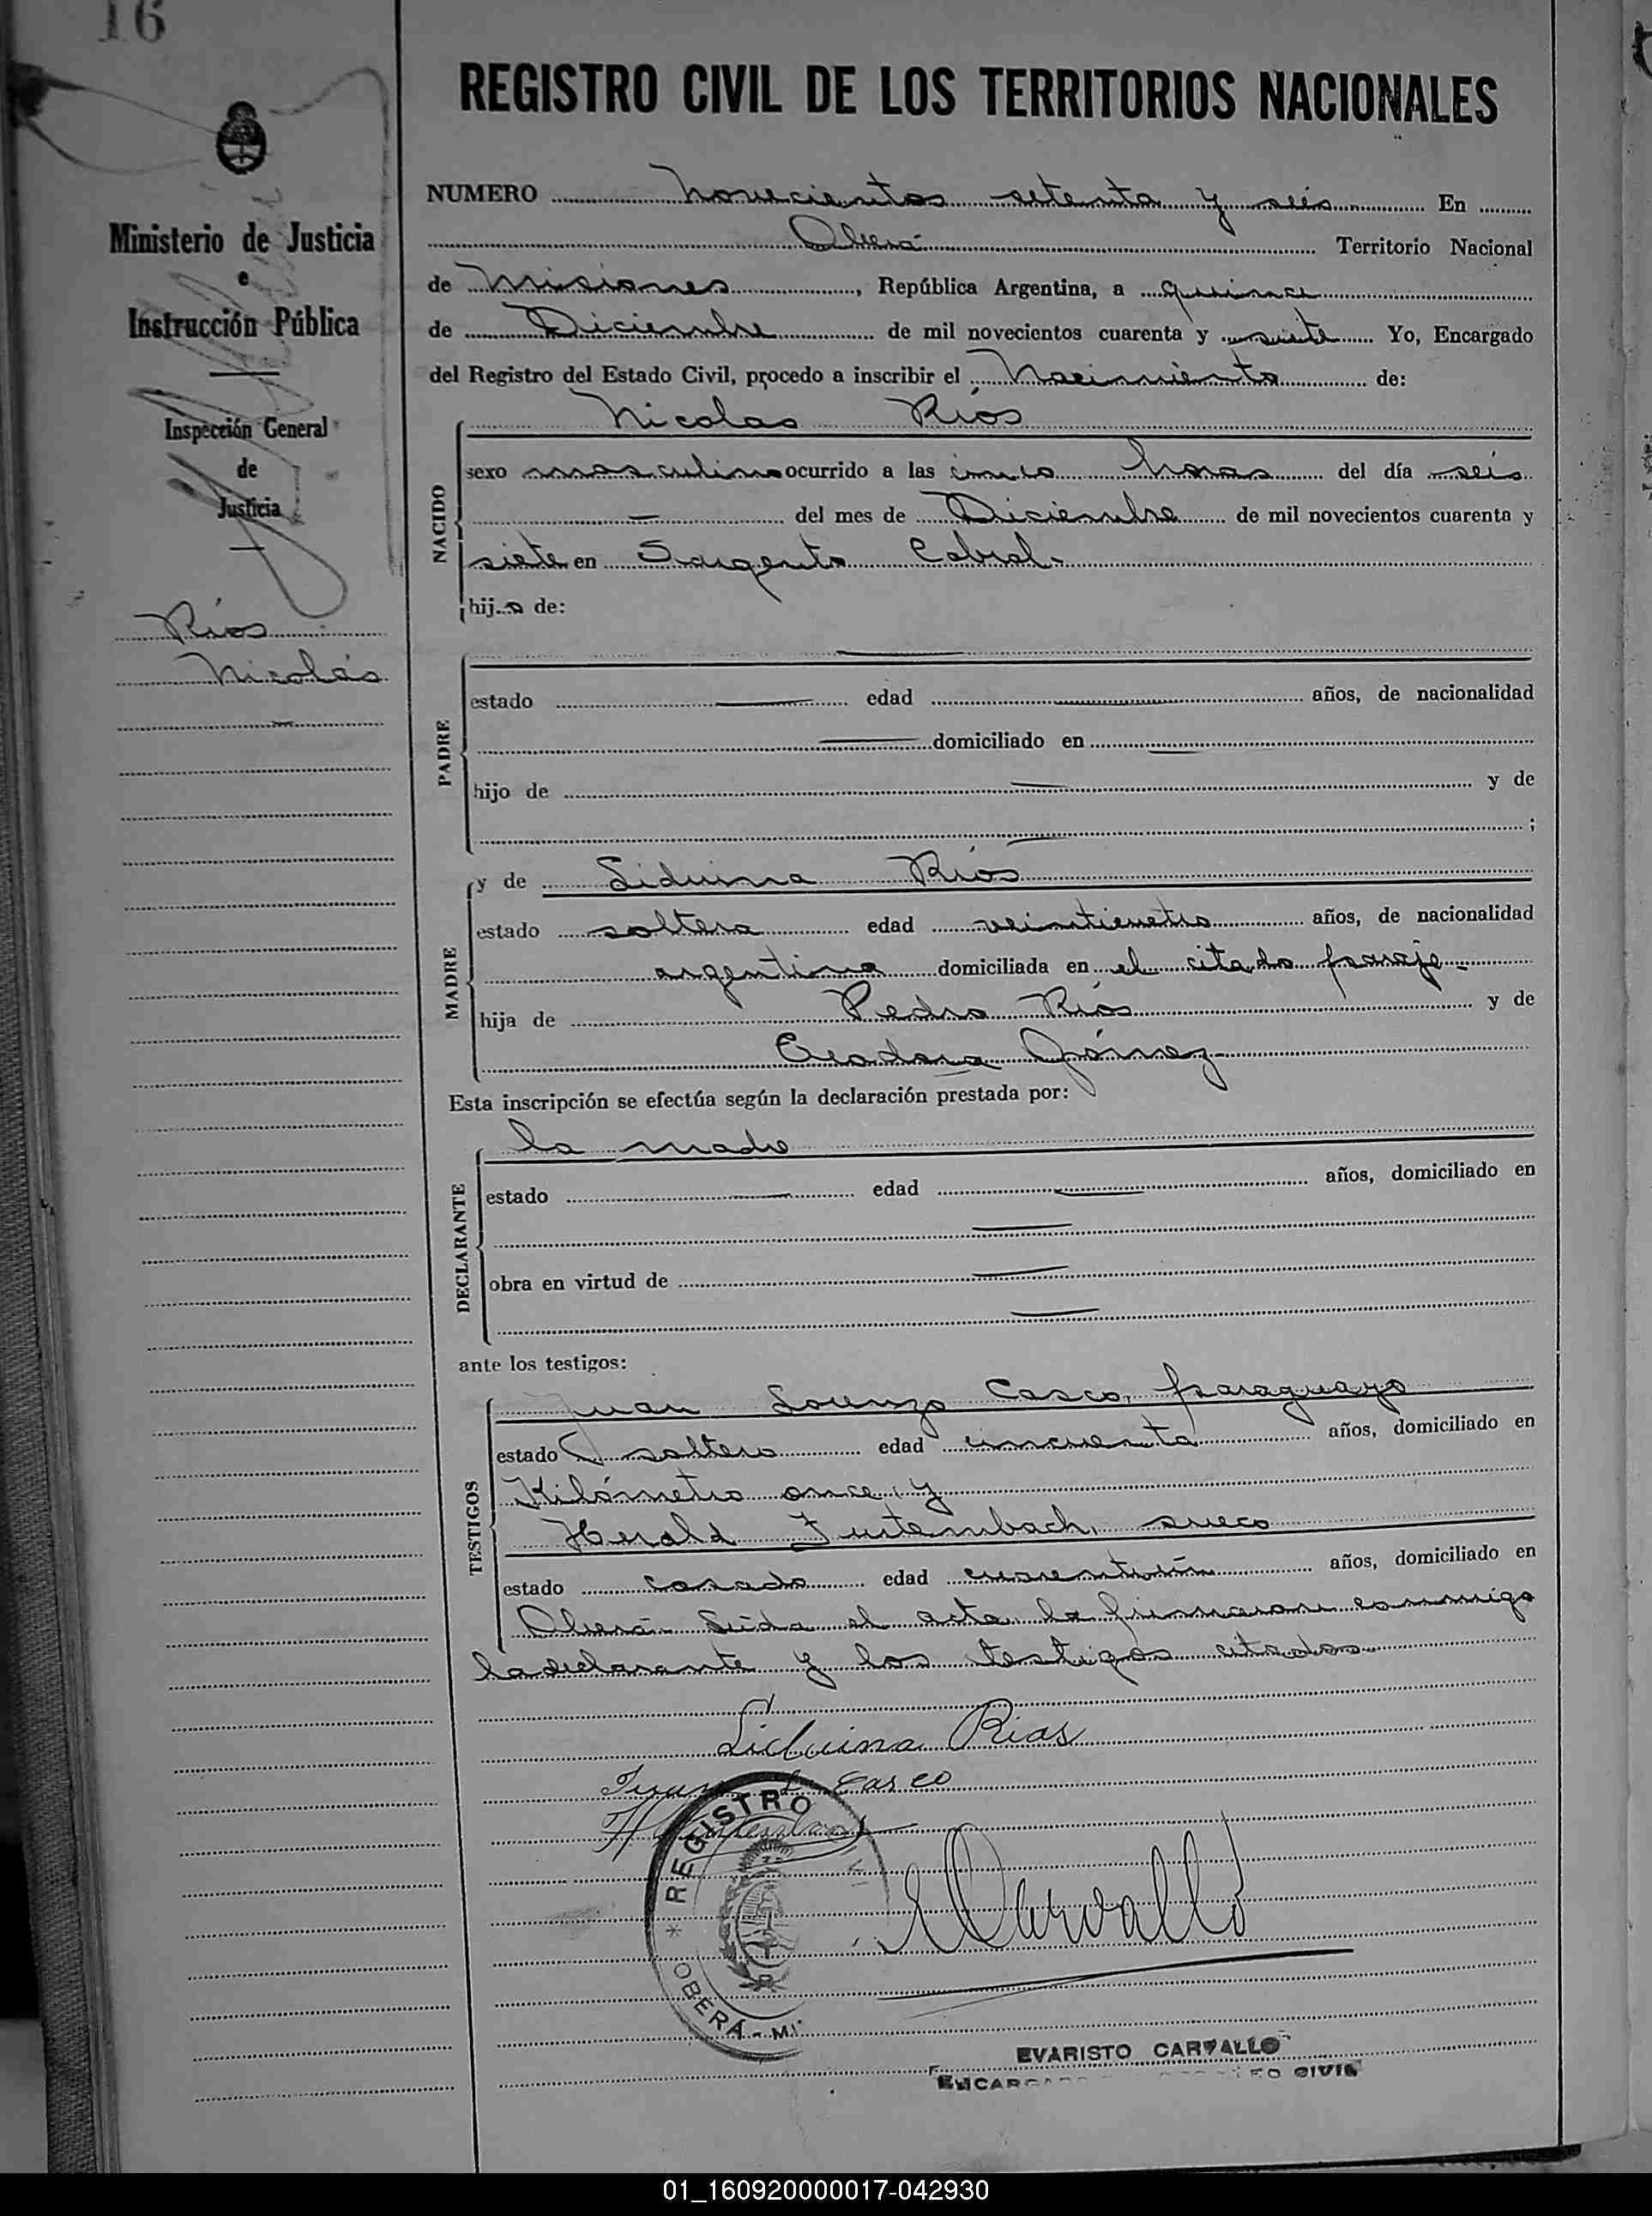 16
REGISTRO CIVIL DE LOS TERRITORIOS NACIONALES
Ministerio de Justicia
e
Instrucción Pública
Inspección General
de
Justicia
Ríos
Nicolás
NUMERO novecientos setenta y seis En
Oberá Territorio Nacional
de Misiones, República Argentina, a quince
de Diciembre de mil novecientos cuarenta y siete Yo, Encargado
del Registro del Estado Civil, procedo a inscribir el Nacimiento de:
NACIDO
Nicolas Ríos
sexo masculino ocurrido a las cinco horas del día seis
— del mes de Diciembre de mil novecientos cuarenta y
siete en Sargento Cabral.
hijo de:
PADRE
—
estado — edad — años, de nacionalidad
— domiciliado en —
hijo de — y de
— ;
MADRE
y de Liduina Ríos
estado soltera edad veinticuatro años, de nacionalidad
argentina domiciliada en el citado paraje
hija de Pedro Ríos y de
Gómez
Esta inscripción se efectúa según la declaración prestada por:
DECLARANTE
la madre
estado — edad — años, domiciliado en
—
obra en virtud de —
—
ante los testigos:
TESTIGOS
Juan Lorenzo Casco, paraguayo
estado soltero edad cincuenta años, domiciliado en
Kilómetro once, y
Herald sueco
estado casado edad años, domiciliado en
Oberá Leída el acta la firmaron conmigo
la declarante y los testigos citados
Liduina Rias
Juan L. Casco
REGISTRO
* OBERÁ - MI
ECarvallo
EVARISTO CARVALLO
01_160920000017-042930